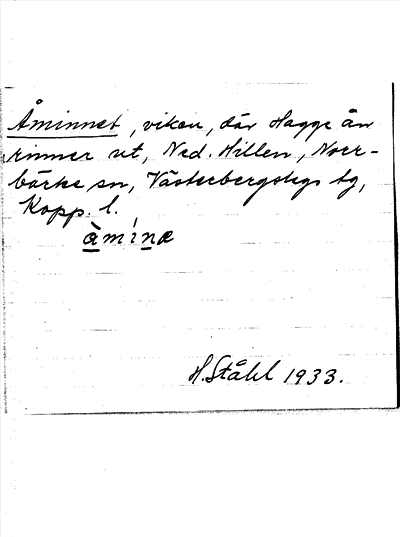 Åminnet, viken, där Hagge ån
rinner ut, Ned. Hillen, Norr-
bärke sn, Västerbergslags tg,
Kopp. l.
åminæ
H. Ståhl 1933.